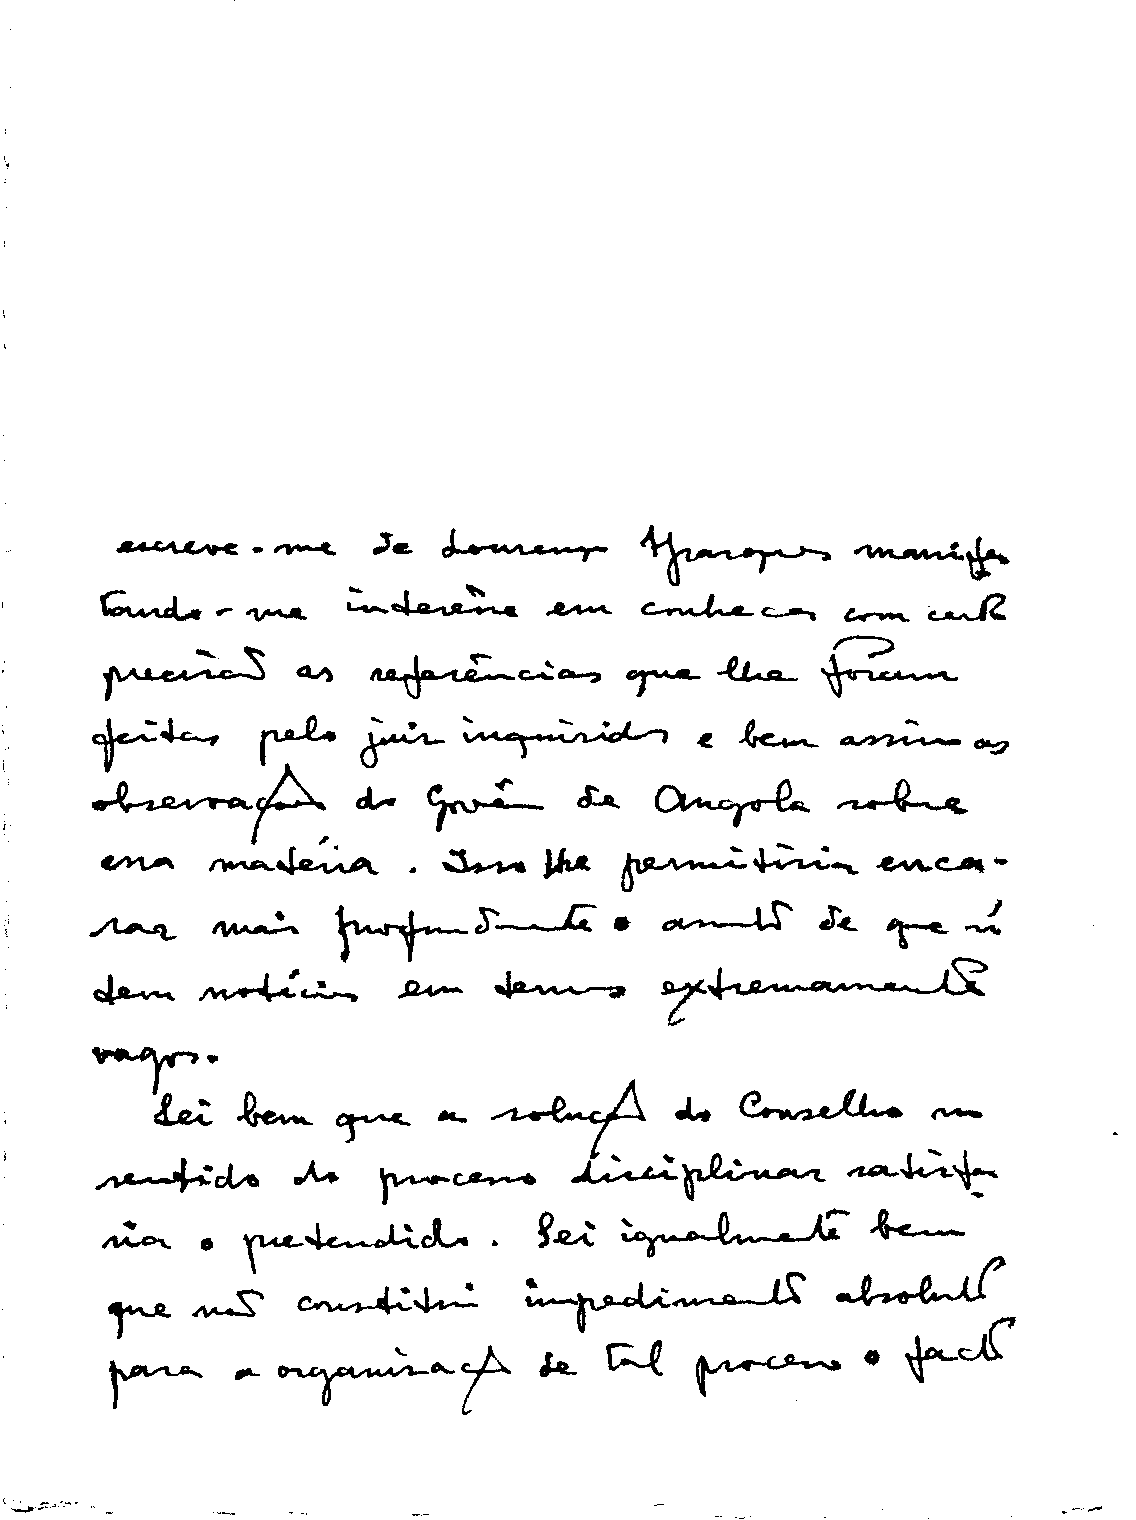 escreve-me de Lourenço Marques manifes
tando-me interêsse em conhecer com certa
precisão as referências que lhe foram
feitas pelo juiz inquiridor e bem assim as
observações do Govêrno de Angola sobre
essa matéria. Isso lhe permitiria enca-
rar mais profundamente o assunto de que só
tem notícias em termos extremamente
vagos.
Sei bem que a solução do Conselho no
sentido do processo disciplinar satisfa-
ria o pretendido. Sei igualmente bem
que não constitui impedimento absoluto
para a organização de tal processo o facto